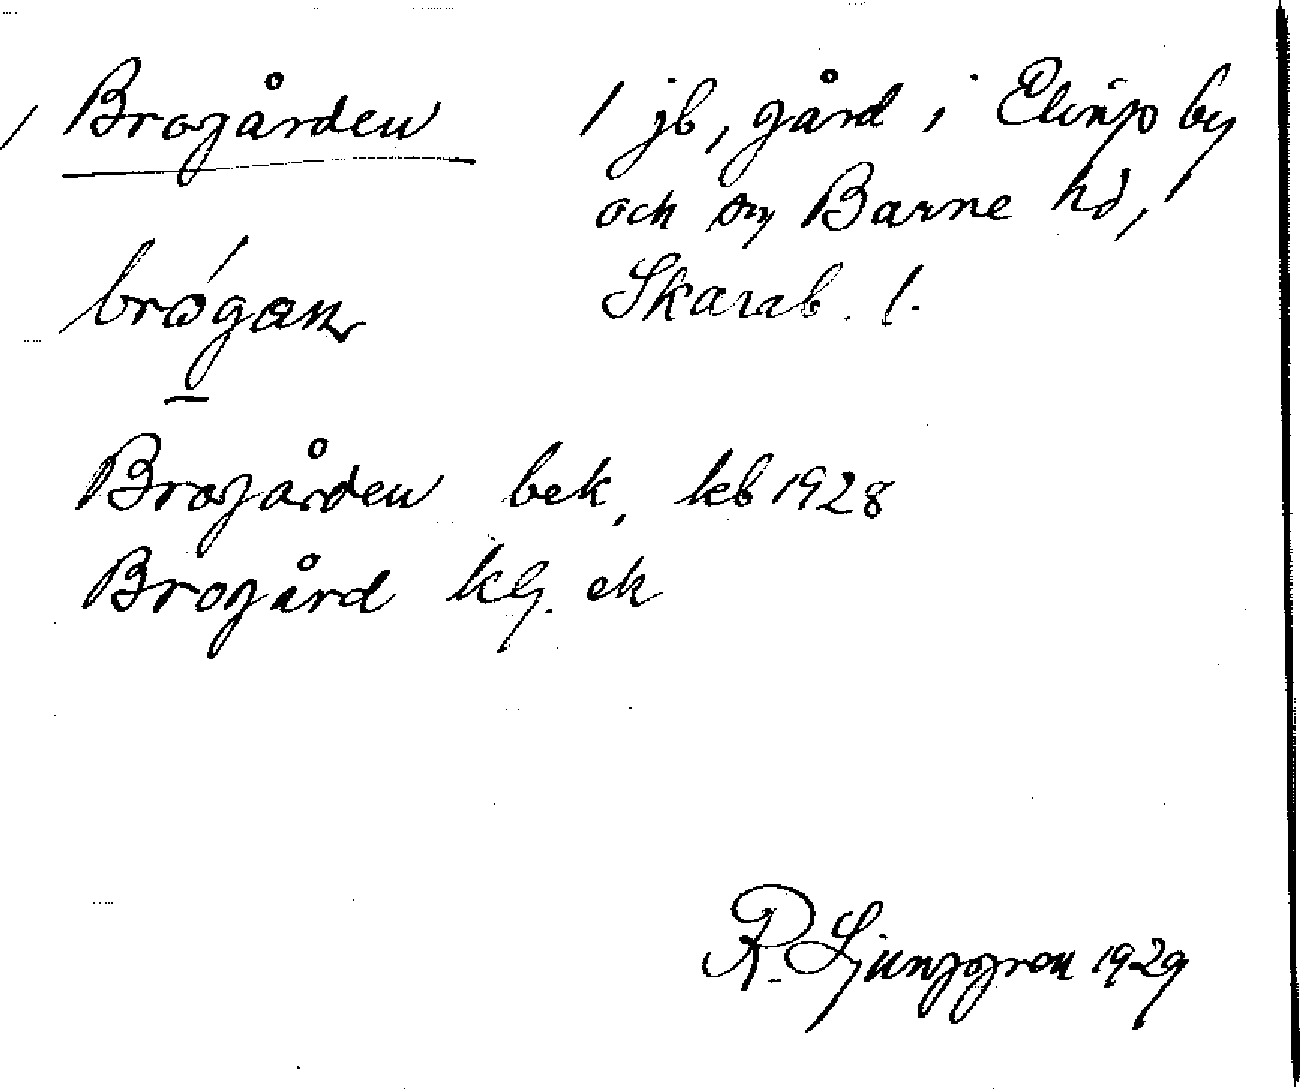 Brogården 1 jb, gård i Elings by
och sn Barne hd,
Skarab. l.
Brogården bek, kb 1928
Brogård kg. ek
R. Ljunggren 1929